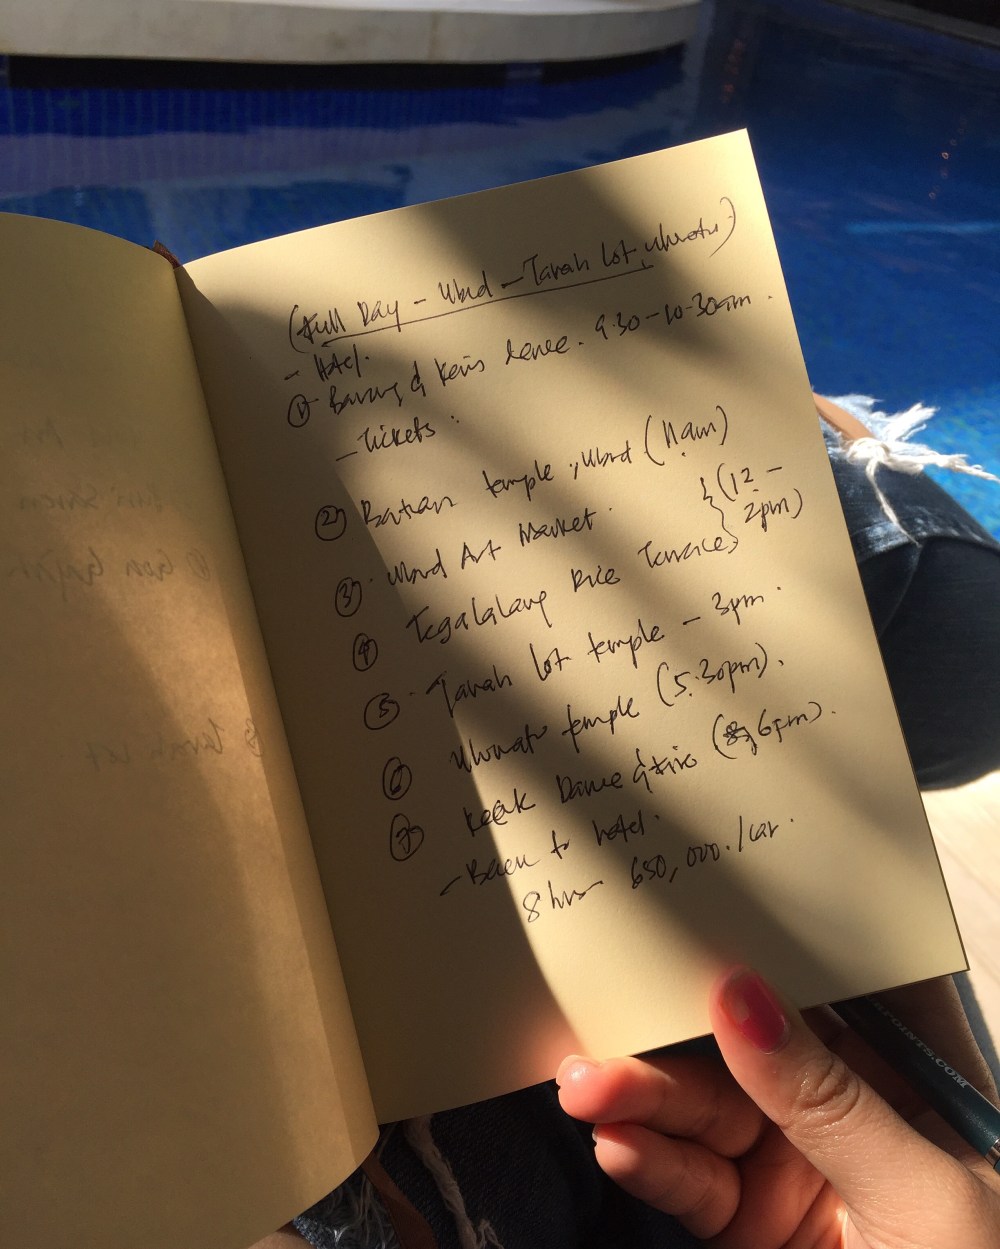 (Full Day - Ubud - Tanah Lot, Uluwatu)
- Hotel.
① Barong & Keris Dance. 9.30 - 10.30am.
- Tickets:
② Batuan temple, Ubud (11am)
③ Ubud Art Market.
④ Tegalalang Rice Terraces } (12 - 2pm)
⑤ Tanah Lot temple - 3pm.
⑥ Uluwatu temple (5.30pm).
⑦ Kecak Dance & fire (6pm).
- Back to hotel.
8 hrs 650,000./car.
Tanah Lot